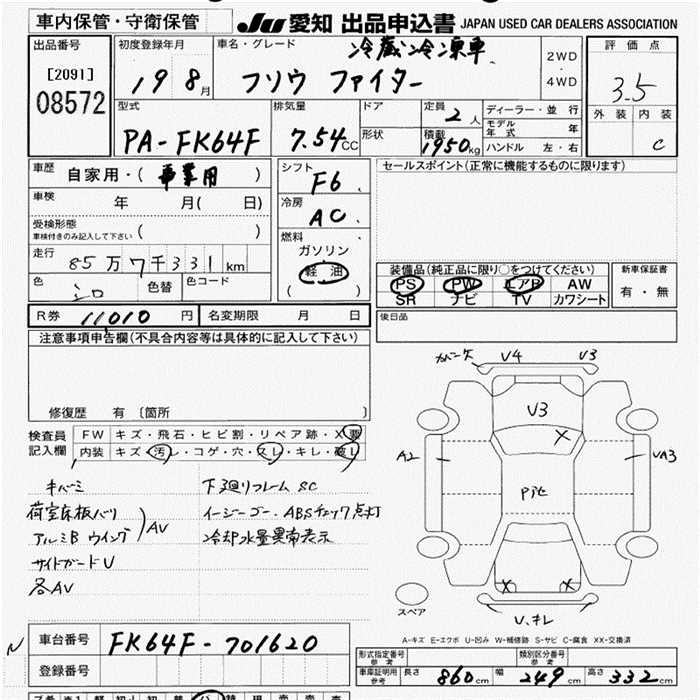 車内保管・守衛保管
JU 愛知 出品申込書 JAPAN USED CAR DEALERS ASSOCIATION
出品番号
[2091]
08572
初度登録年月
19 8月
車名・グレード
冷蔵冷凍車
フソウ ファイター
2WD
・
4WD
評価点
3.5
外装 内装
C
型式
PA-FK64F
排気量
7.54cc
ドア
形状
定員
2人
積載
1950kg
ディーラー・並行
モデル年式 年
ハンドル 左・右
車歴
自家用・( 事業用 )
車検
年 月( 日)
受検形態
車検付きのみ記入して下さい
( )
走行
85万7千331km
色
シロ
色替
色コード
シフト
F6
冷房
AC
燃料
ガソリン
軽油
( )
セールスポイント(正常に機能するものに限ります)
装備品(純正品に限り○をつけてください)
PS PW エアB AW
SR ナビ TV カワシート
新車保証書
有・無
後日品
R券 11010 円
名変期限 月 日
注意事項申告欄(不具合内容等は具体的に記入して下さい)
修復歴 有 〔箇所 〕
検査員
記入欄
FW キズ・飛石・ヒビ割・リペア跡・X要
内装 キズ・汚レ・コゲ・穴・スレ・キレ・破レ
キバミ
荷室床板バリ
アルミB ウイング AV
サイドガードU
各AV
下廻りフレームSC
イージーゴー、ABSチェック点灯
冷却水量異常表示
V4 V3
V3
A2
VA3
U.キレ
スペア
A-キズ E-エクボ U-凹み W-補修跡 S-サビ C-腐食 XX-交換済
車台番号
FK64F-701620
登録番号
形式指定番号
参考
類別区分番号
参考
車庫証明用
参考
長さ 860cm 幅 249cm 高さ 332cm